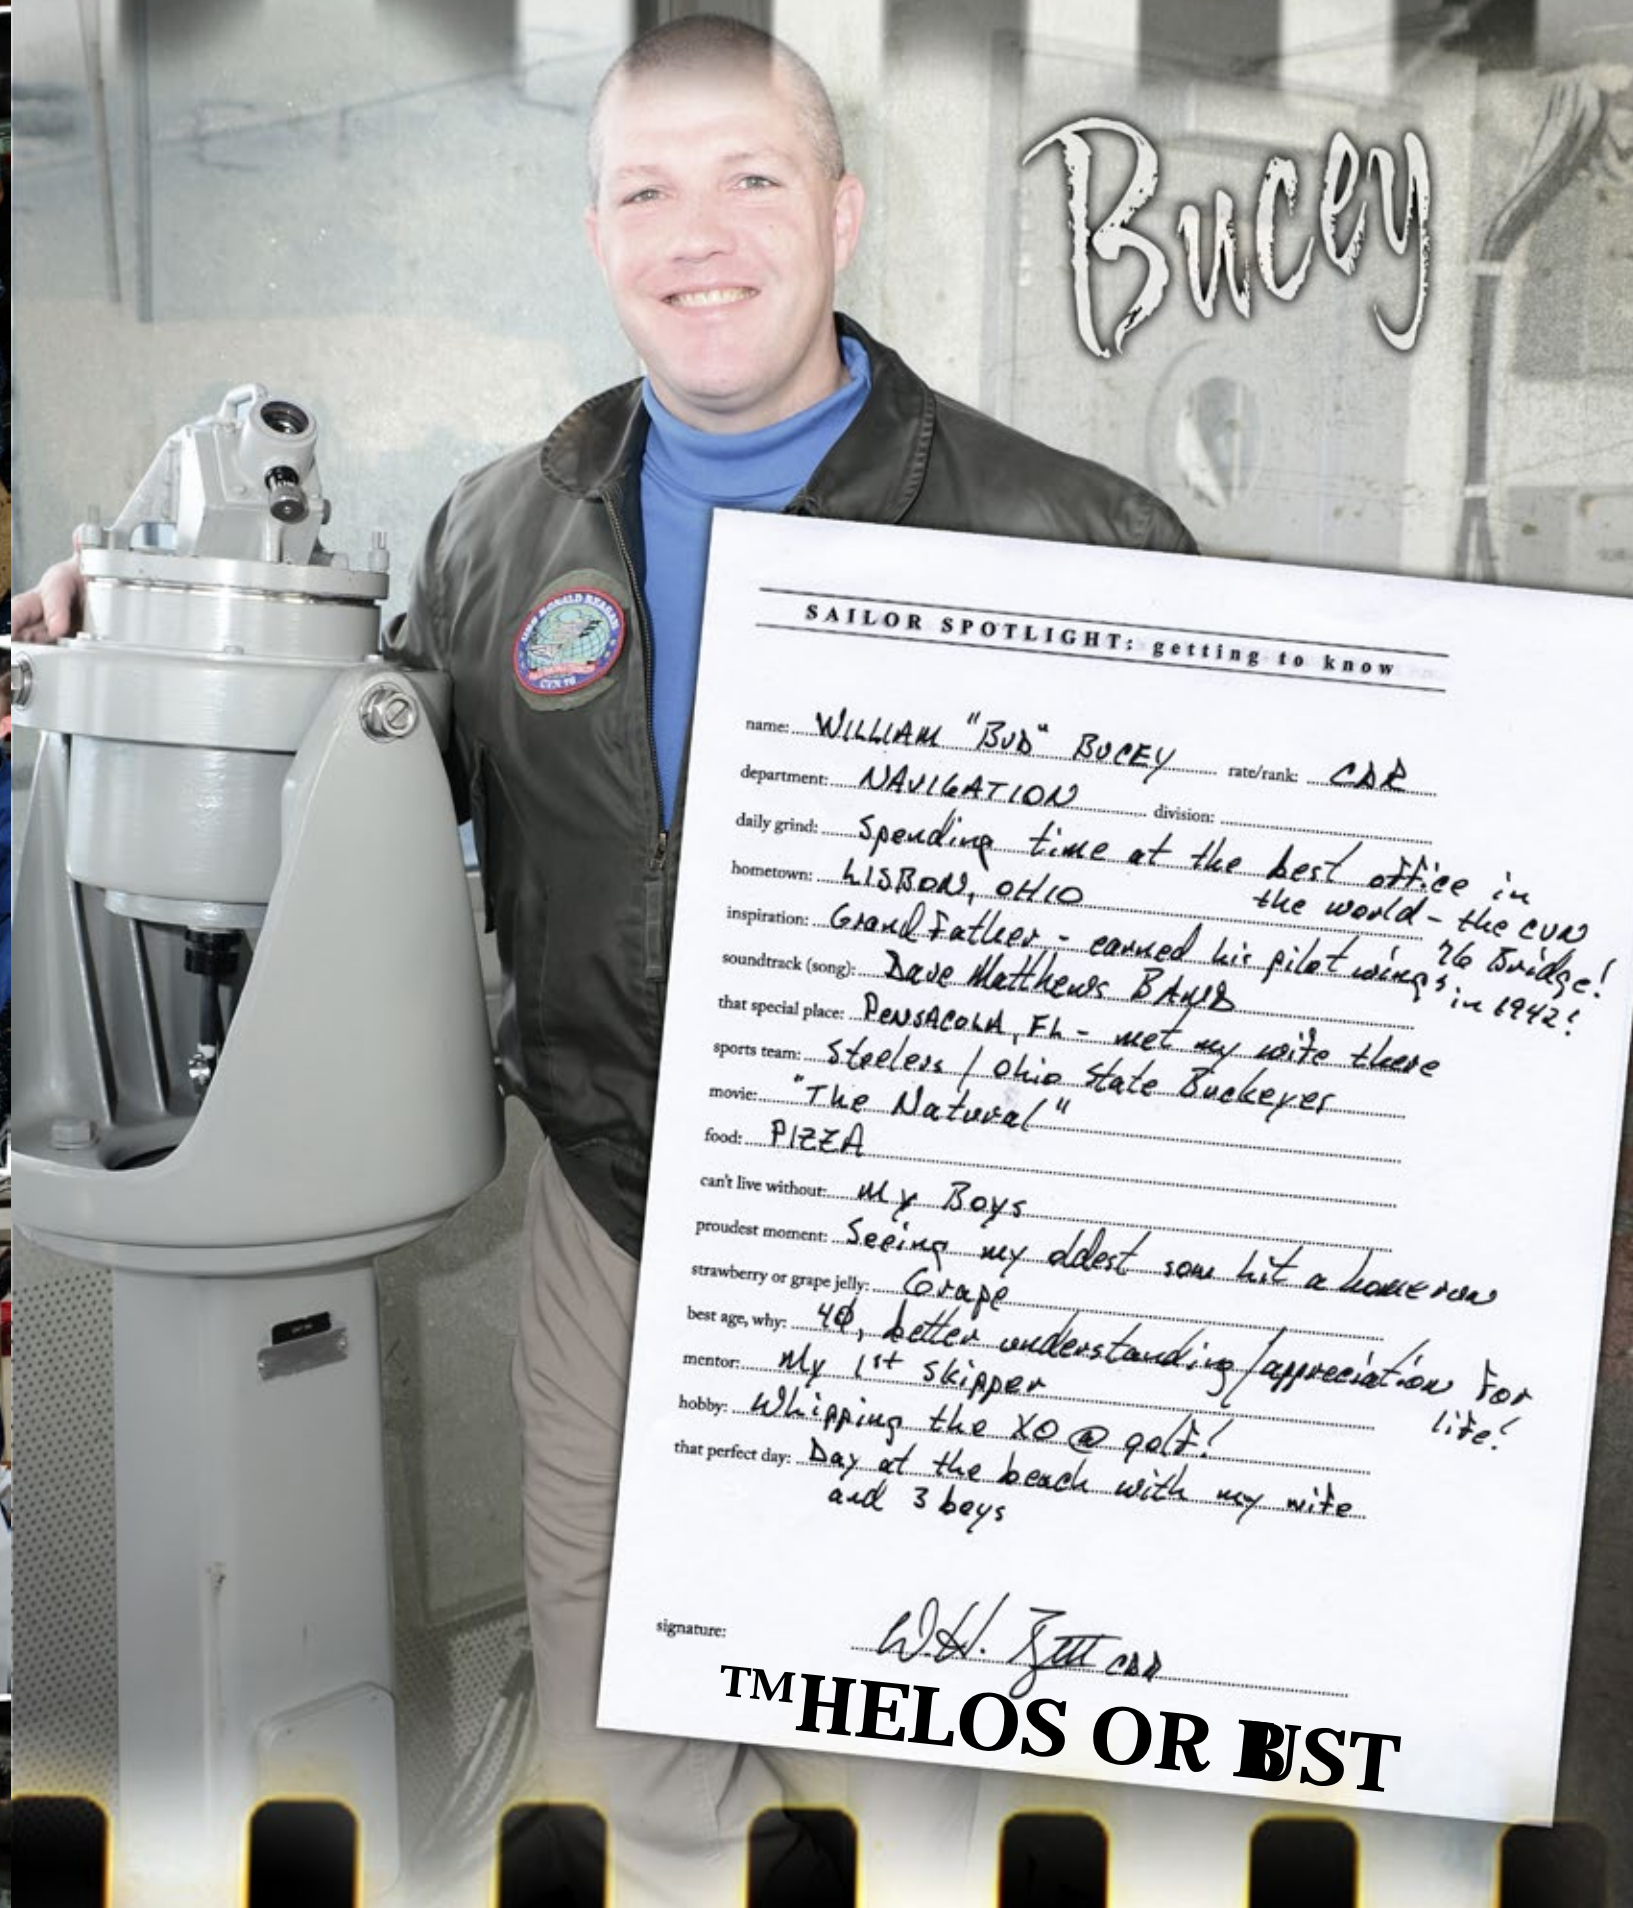 Bucey
USS RONALD REAGAN
CVN 76
SAILOR SPOTLIGHT: getting to know
name: WILLIAM "BUD" BUCEY rate/rank: CDR
department: NAVIGATION division:
daily grind: Spending time at the best office in
the world - the CVN
76 Bridge!
hometown: LISBON, OHIO
inspiration: Grand Father - earned his pilot wings in 1942!
soundtrack (song): Dave Matthews BAND
that special place: PENSACOLA, FL - met my wife there
sports team: Steelers / Ohio State Buckeyes
movie: "The Natural"
food: PIZZA
can't live without: My Boys
proudest moment: Seeing my oldest son hit a home run
strawberry or grape jelly: Grape
best age, why: 40, better understanding/appreciation for
life!
mentor: My 1st Skipper
hobby: Whipping the XO @ golf!
that perfect day: Day at the beach with my wife
and 3 boys
signature: W.H. CDR
™HELOS OR BUST